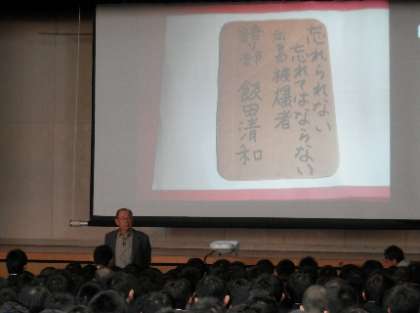 忘れられない
忘れてはならない
広島被爆者
語り部 飯田清和